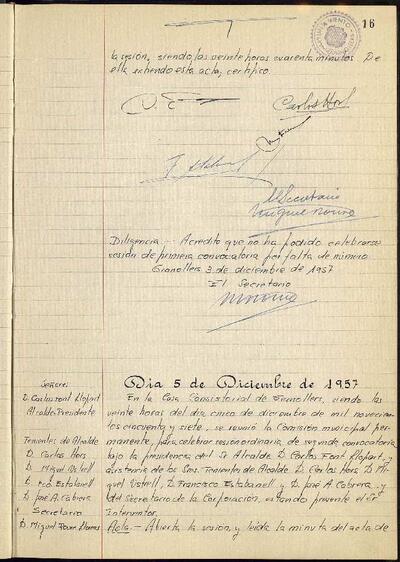 16
la sesión, siendo las veinte horas cuarenta minutos De
ella extiendo esta acta, certifico.
Carlos
El Secretario
Diligencia - Acredito que no ha podido celebrarse
sesión de primera convocatoria por falta de número
Granollers 3 de diciembre de 1957
El Secretario
Señores
D. Carlos Font Llopart
Alcalde-Presidente
Tenientes de Alcalde
D. Carlos Hors
D. Miguel Ustrell
D. Fco Estabanell
D. José A. Cabrera
Secretario
D. Miguel
Dia 5 de Diciembre de 1957
En la Casa Consistorial de Granollers, siendo las
veinte horas del dia cinco de diciembre de mil novecien
tos cincuenta y siete, se reunió la Comisión municipal
permanente, para celebrar sesión ordinaria, de segunda convocatoria
bajo la presidencia del Sr Alcalde D. Carlos Font Llopart, y
asistencia de los Sres. Tenientes de Alcalde D. Carlos Hors D. Mi
guel Ustrell, D. Francisco Estabanell y D. José A. Cabrera, y
del Secretario de la Corporación, estando presente el Sr
Interventor.
Acta - Abierta la sesión, y leida la minuta del acta de